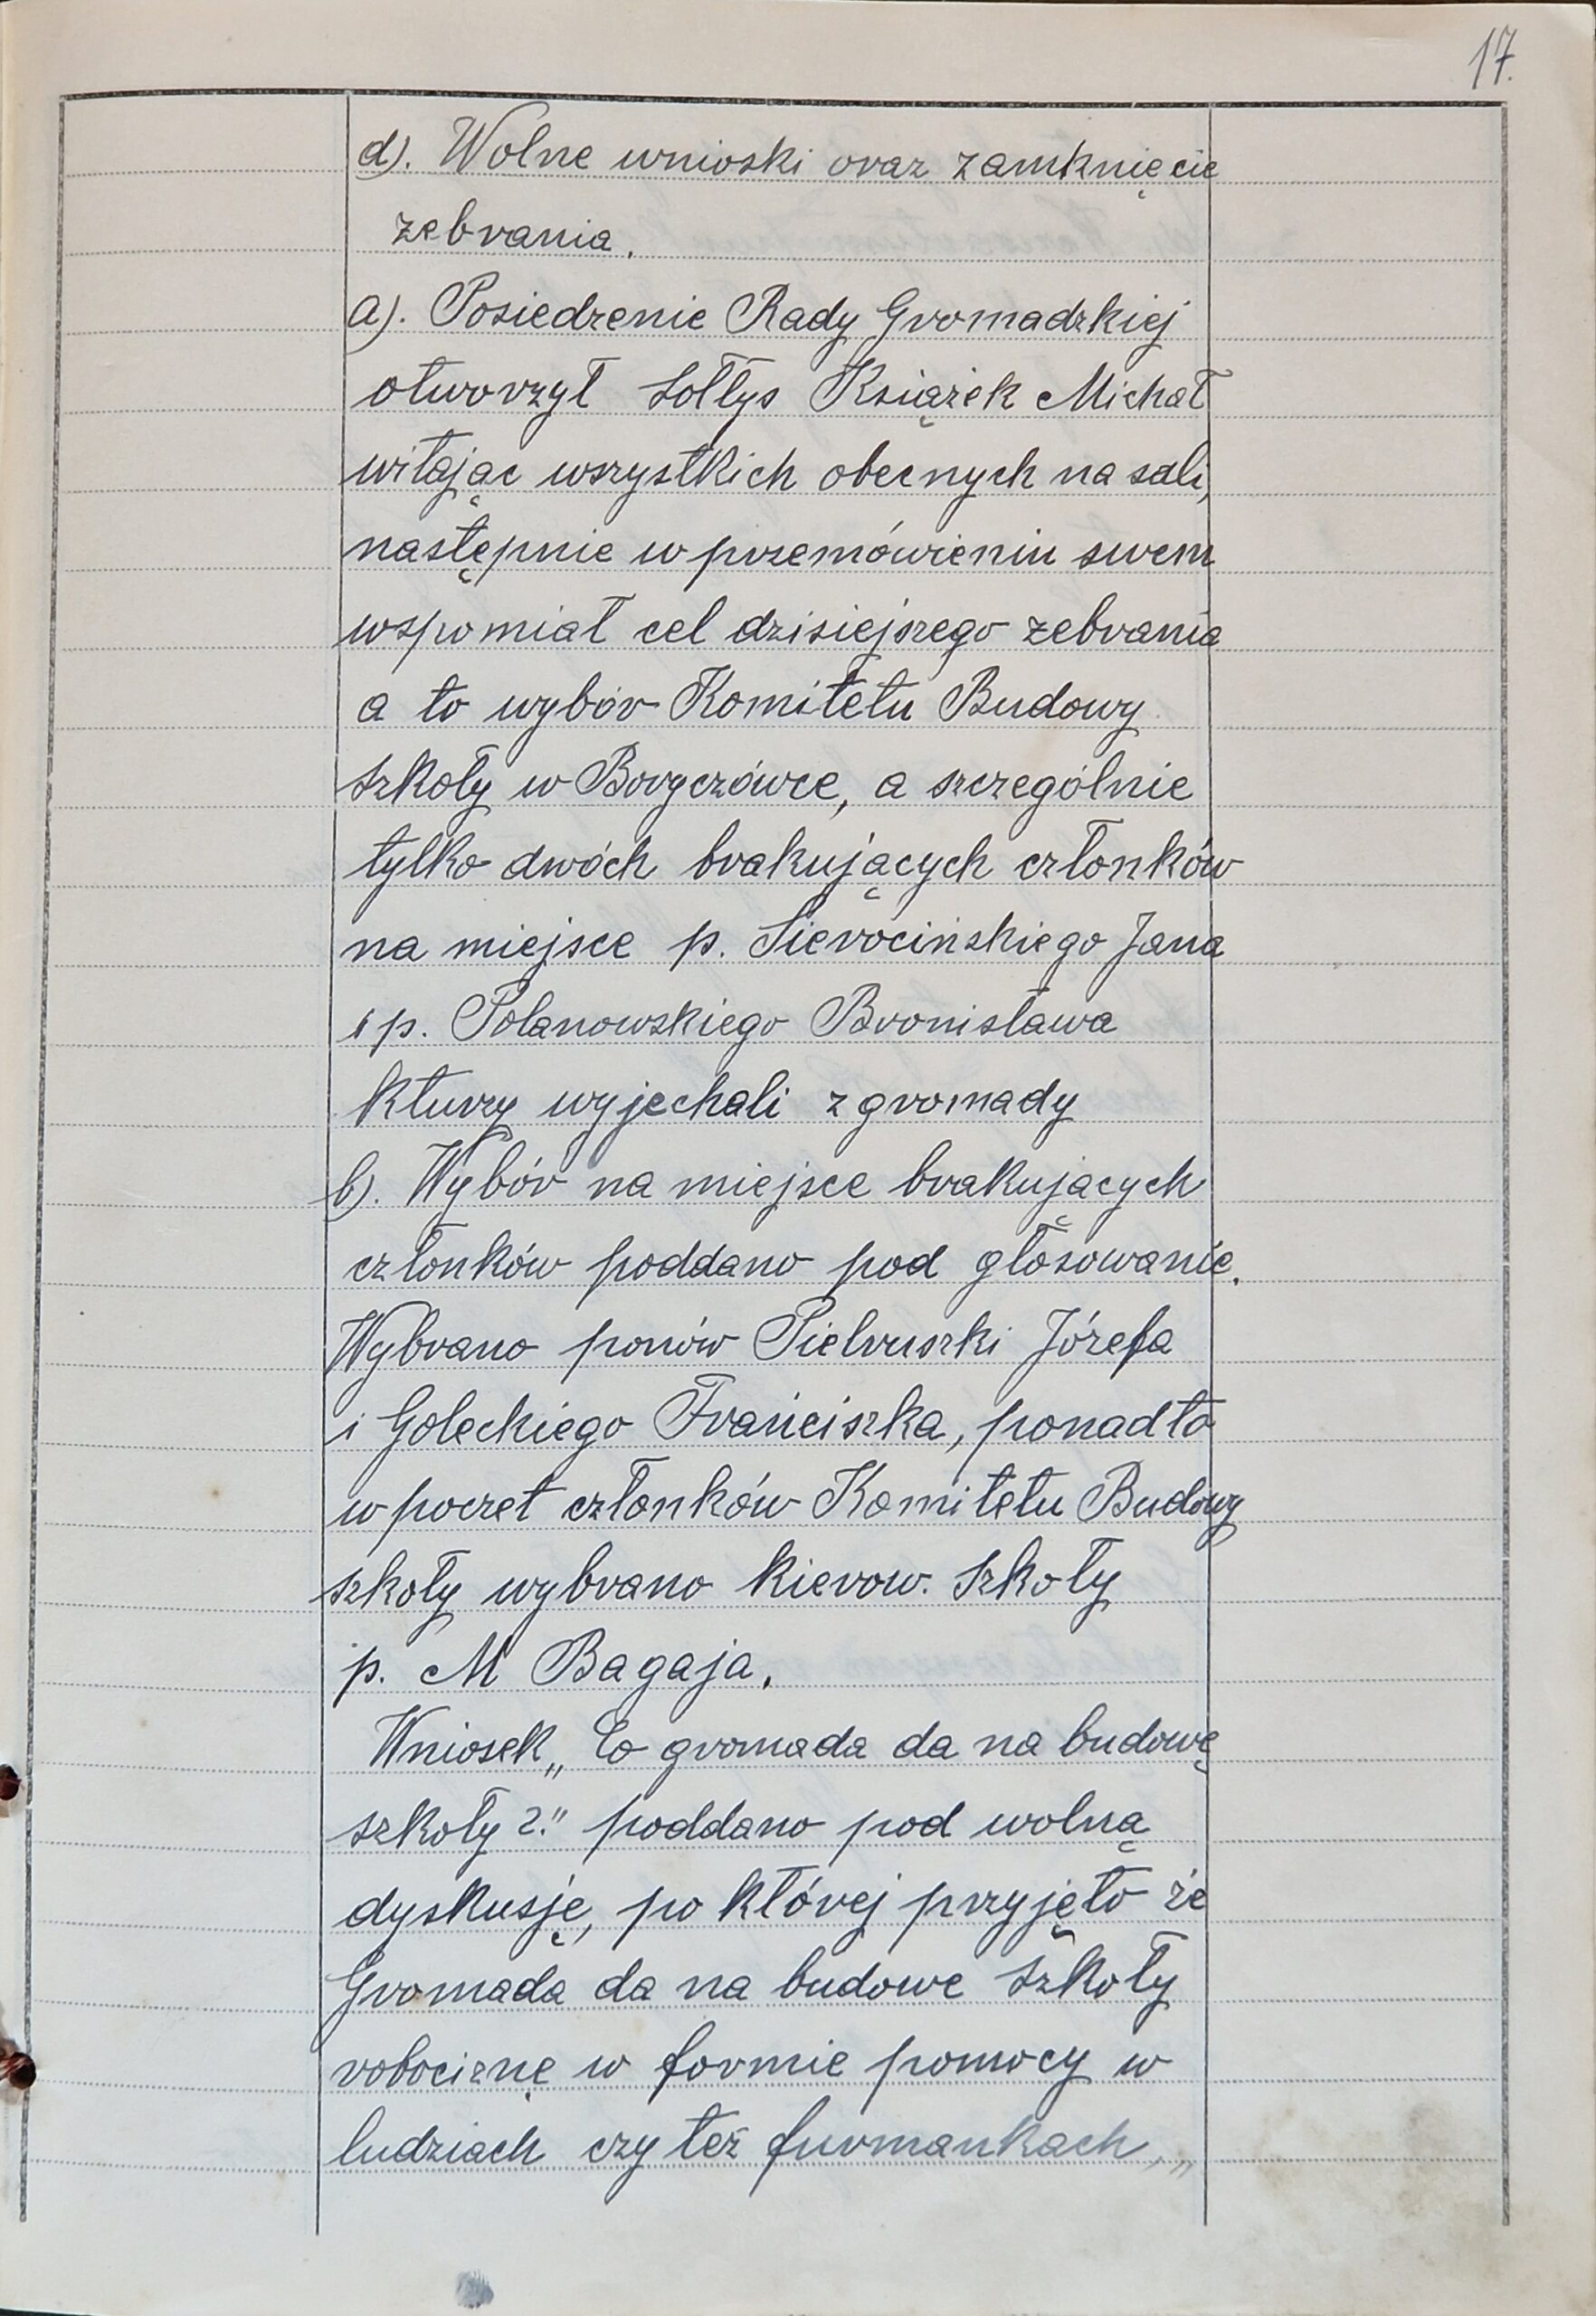 17.
d). Wolne wnioski oraz zamknięcie
zebrania.
a). Posiedzenie Rady Gromadzkiej
otworzył Sołtys Książek Michał
witając wszystkich obecnych na sali,
następnie w przemówieniu swem
wspomiał cel dzisiejszego zebrania
a to wybór Komitetu Budowy
Szkoły w Boryczówce, a szczególnie
tylko dwóch brakujących członków
na miejsce p. Sierocińskiego Jana
i p. Polanowskiego Bronisława
kturzy wyjechali z gromady
b). Wybór na miejsce brakujących
członków poddano pod głosowanie.
Wybrano panów Pielruszki Józefa
i Goleckiego Franciszka, ponadto
w poczet członków Komitetu Budowy
szkoły wybrano kierow. Szkoły
p. M Bagaja.
Wniosek „Co gromada da na budowę
szkoły?" poddano pod wolną
dyskusję, po której przyjęto że
Gromada da na budowe Szkoły
robociznę w formie pomocy w
ludziach czy też furmankach,"